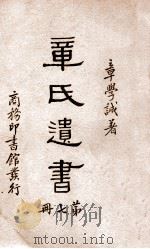 章學誠著
章氏遺書
第七冊
商務印書館發行